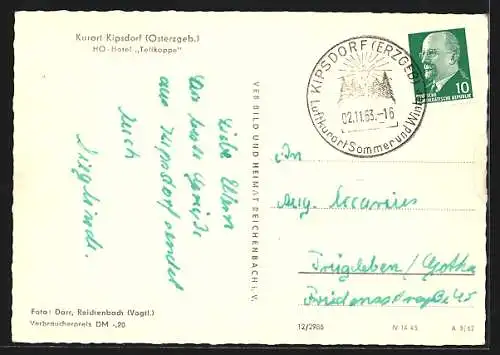 Kurort Kipsdorf (Osterzgeb.)
HO-Hotel „Tellkoppe"
Liebe Eltern
Die besten Grüsse
aus Kipsdorf sendet
Euch
Sieglinde.
Foto: Darr, Reichenbach (Vogtl.)
Verbraucherpreis DM -,20
VEB BILD UND HEIMAT REICHENBACH i. V.
KIPSDORF (ERZGEB)
02.11.63.-16
Luftkurort Sommer und Winter
10
DEUTSCHE
DEMOKRATISCHE REPUBLIK
An
Aug.
Trügleben / Gotha
Friedensstraße 45
12/2986
IV-14-45
A 3/62